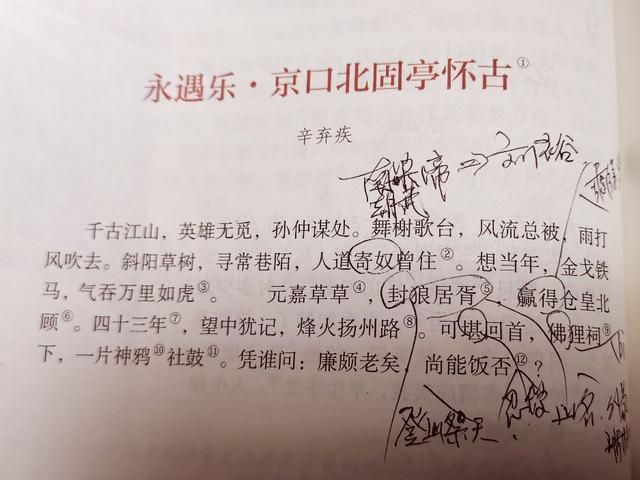 永遇乐·京口北固亭怀古①
辛弃疾
南朝宋武帝⇒刘裕
千古江山，英雄无觅，孙仲谋处。舞榭歌台，风流总被，雨打
风吹去。斜阳草树，寻常巷陌，人道寄奴曾住②。想当年，金戈铁
马，气吞万里如虎③。 元嘉草草④，封狼居胥⑤，赢得仓皇北
顾⑥。四十三年⑦，望中犹记，烽火扬州路⑧。可堪回首，佛狸祠⑨
下，一片神鸦⑩社鼓⑪。凭谁问：廉颇老矣，尚能饭否⑫？
登山祭天